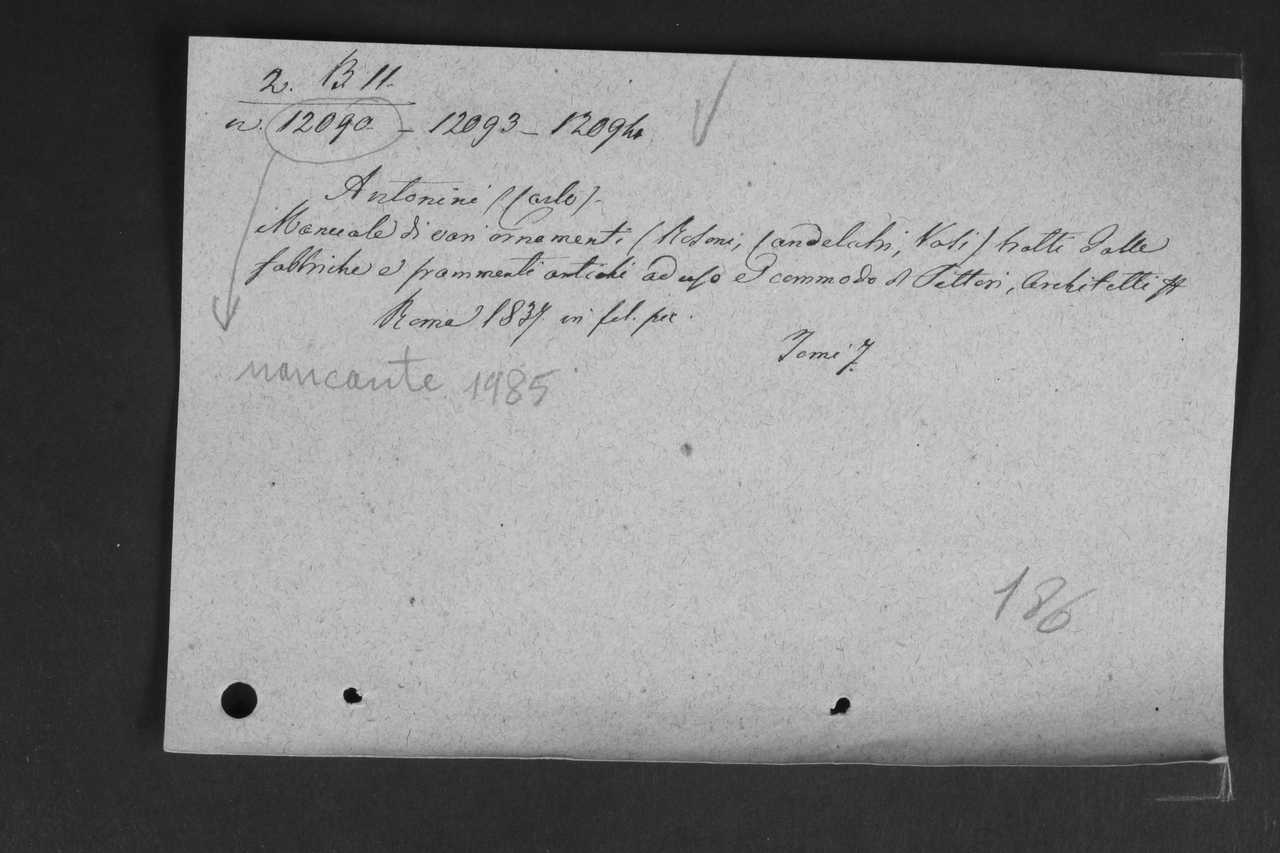 2. B 11.
n. 12090 – 12093 – 12094
Antonini (Carlo).
Manuale di vari ornamenti (Rosoni, Candelabri, Vasi) tratti dalle
fabbriche e frammenti antichi ad uso e commodo di Pittori, Architetti
Roma 1837. in fol. pic.
Tomi
mancante 1985
186